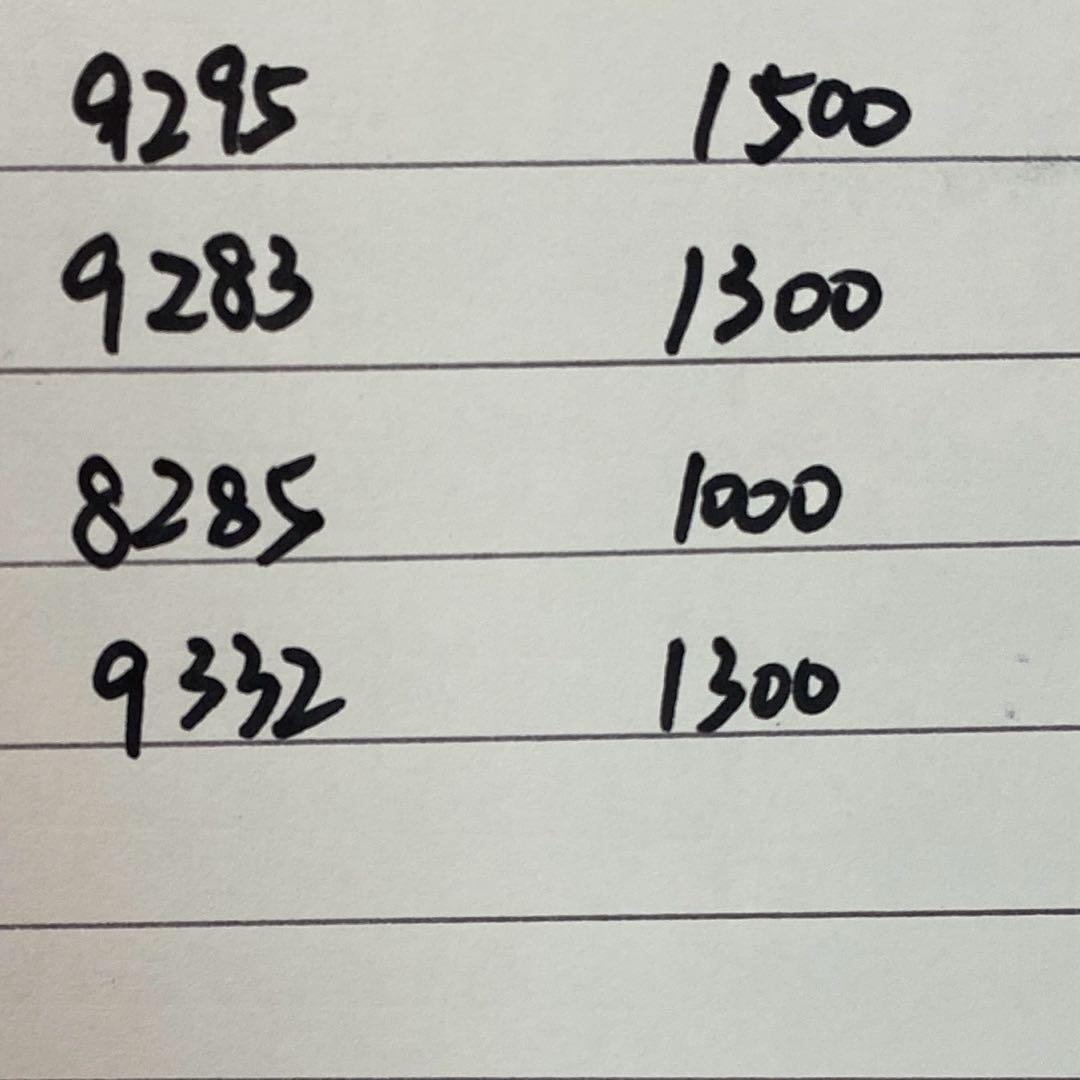 9295 1500
9283 1300
8285 1000
9332 1300